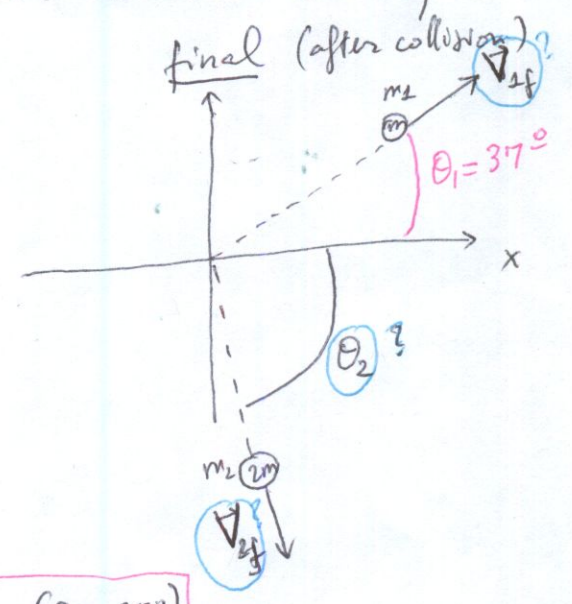 final (after collision)
V₁f ?
m₁
m
θ₁ = 37°
x
θ₂ ?
m₂ 2m
V₂f ?